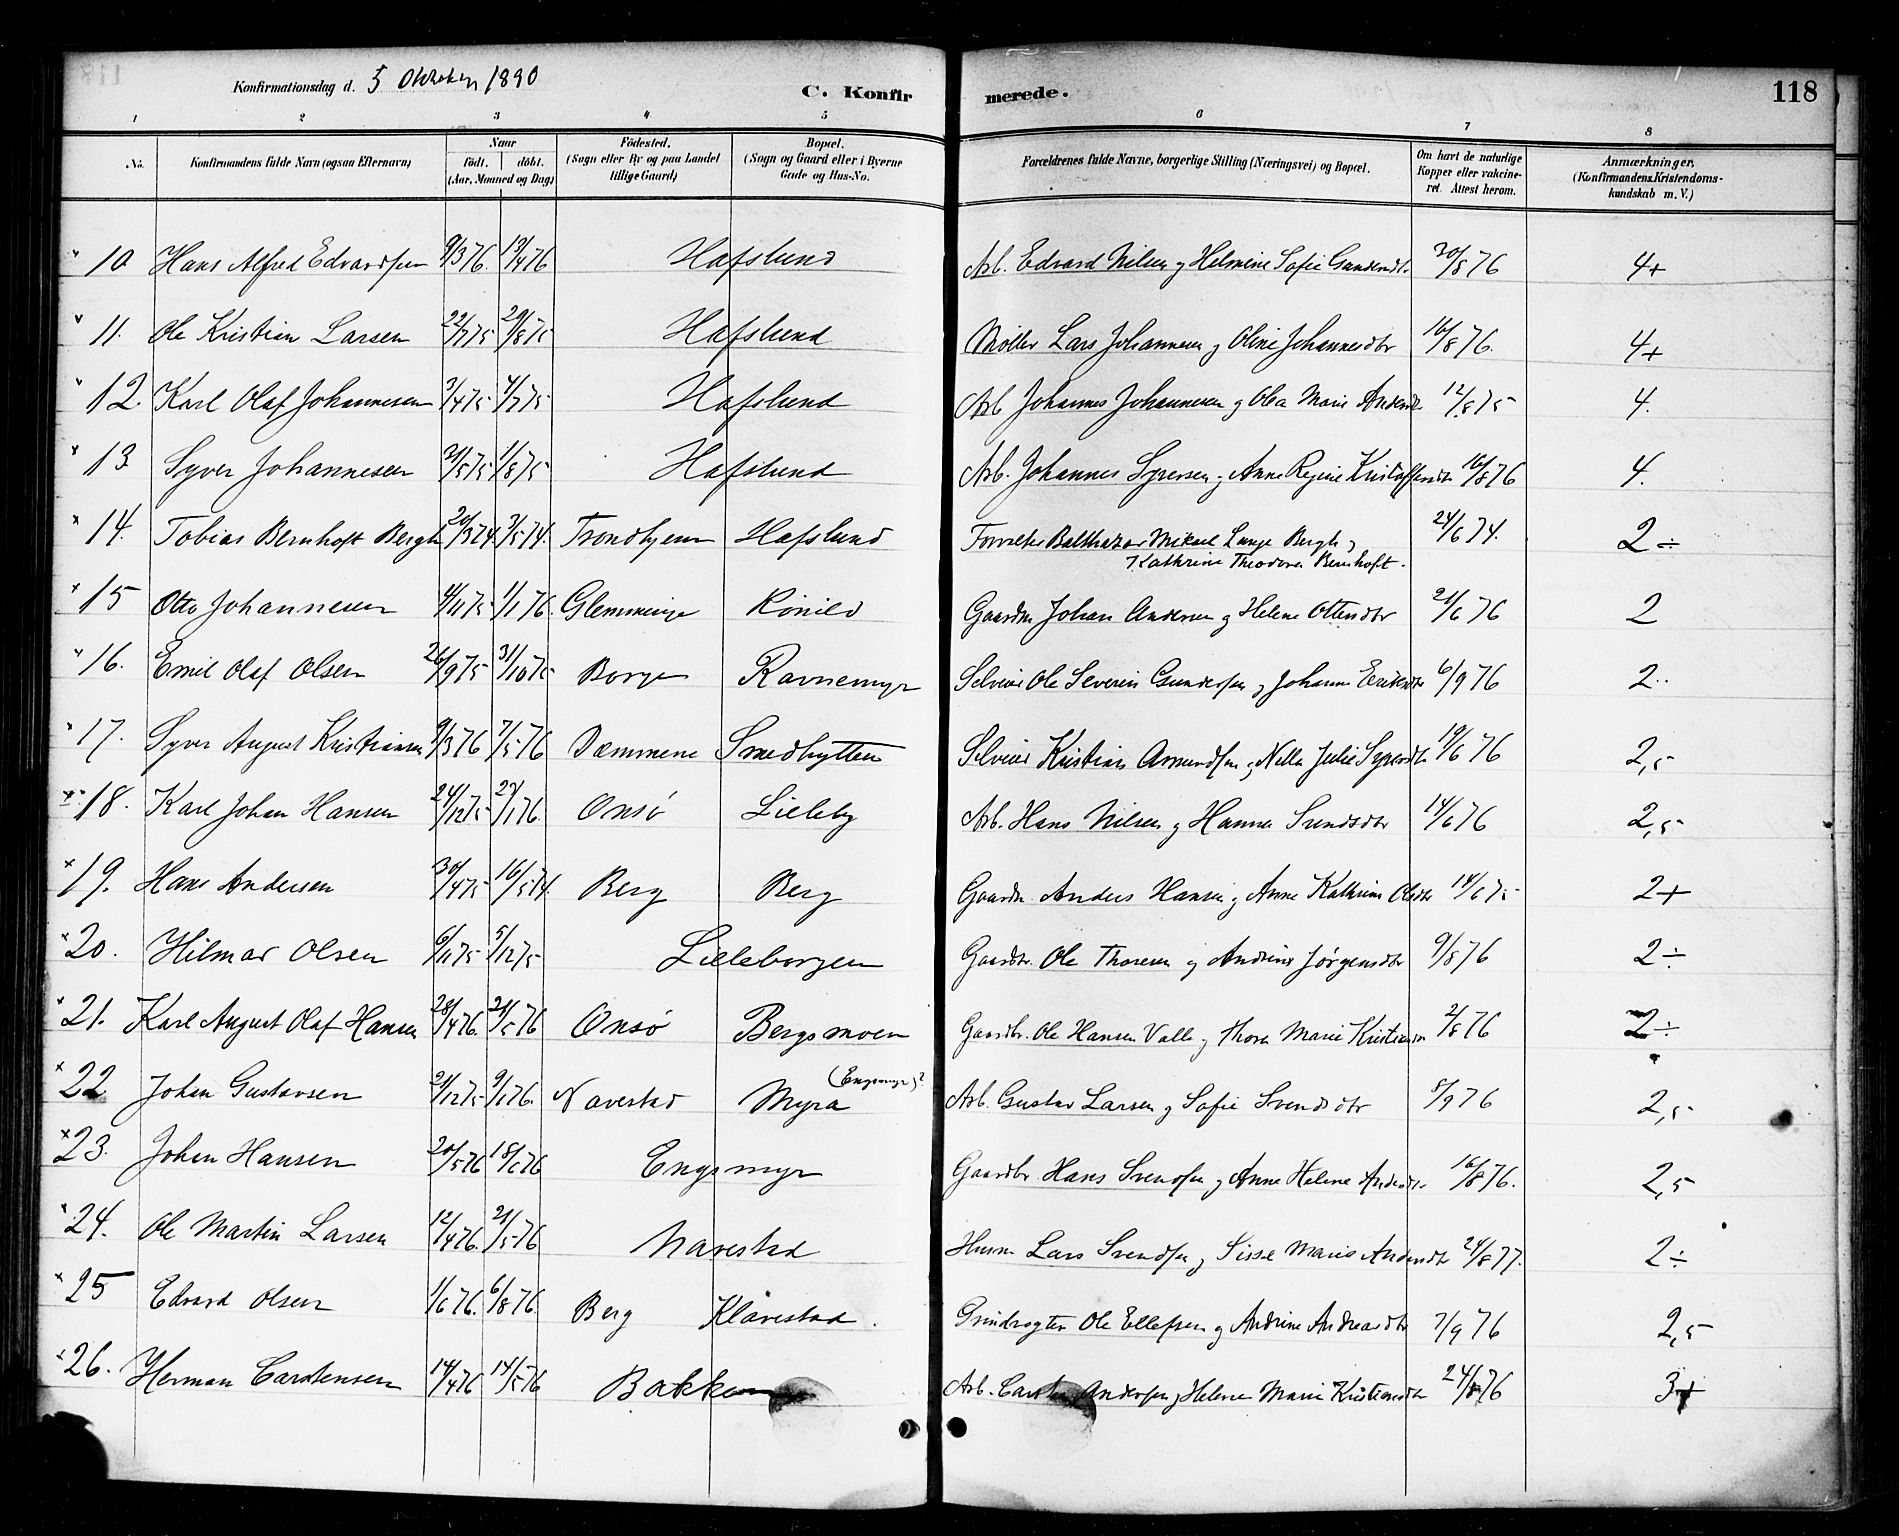 Konfirmationsdag d. 5 Oktober 1890
C. Konfirmerede.
118
1 2 3 4 5 6 7 8
No. Konfirmandens fulde Navn (ogsaa Efternavn) Naar födt. döbt. (Aar, Maaned og Dag) Födested. (Sogn eller By og paa Landet tillige Gaard) Bopæl. (Sogn og Gaard eller i Byerne Gade og Hus-No. Forældrenes fulde Navne, borgerlige Stilling (Næringsvei) og Bopæl. Om havt de naturlige Kopper eller vakcineret. Attest herom. Anmærkninger. (Konfirmandens Kristendomskundskab m. V.)
10 Hans Alfred Edvardsen 9/3 76. 13/4 76 Hafslund Arb. Edvard Nilsen og Helmine Sofie Gundersdtr. 20/8 76 4+
11. Ole Kristian Larsen 22/7 75 29/8 75 Hafslund Møller Lars Johannesen og Oline Johannesdtr 16/8 76. 4+
12. Karl Olaf Johannesen 3/4 75 4/7 75 Hafslund Arb Johannes Johannesen og Olea Marie Andersdtr. 12/8 75 4.
13. Syver Johannesen 31/5 75 1/8 75 Hafslund Arb. Johannes Syversen og Anne Regine Kristoffersdtr 16/8 76 4.
14. Tobias Bernhoft Bergh 20/3 74. 3/5 74. Trondhjem Hafslund Forvalter Balthazar Mikael Lange Bergh og
Kathrine Theodora Bernhoft. 24/6 74. 2÷
15 Otto Johannesen 4/11 75 1/1 76. Glemminge Rönild Gaardm Johan Andersen og Helene Ottersdtr 21/6 76 2
16. Emil Olaf Olsen 26/9 75 31/10 75 Borge Ravnemyr Selveier Ole Severin Gundersen og Johanne Eriksdtr 6/9 76 2..
17. Syver August Kristiansen 9/3 76 7/5 76 Dæmmene Smedhytten Selveier Kristian Amundsen og Nella Julie Syversdtr 19/6 76 2,5
18. Karl Johan Hansen 24/12 75 23/1 76. Onsø Lieleby Arb. Hans Nilsen og Hanna Svendsdtr 14/6 76 2,5
19. Hans Andersen 30/4 75 16/5 74. Berg Berg Gaardm. Anders Hansen og Anne Kathrine Olsdtr 14/6 75 2+
20. Hilmar Olsen 6/11 75 5/12 75 Lieleborgen Gaardbr. Ole Thoresen og Andrine Jørgensdtr 9/8 76 2÷
21. Karl August Olaf Hansen 28/4 76. 21/5 76 Onsø Bergsmoen Gaardbr. Ole Hansen Valle og Thora Marie Kristiansdtr 2/8 76 2÷
22 Johan Gustavsen 21/12 75 9/1 76. Navestad Myra (Engsmyr)? Arb. Gustav Larsen og Sofie Svendsdtr 8/9 76 2,5
23. Johan Hansen 20/5 76 18/6 76 Engsmyr Gaardbr Hans Svendsen og Anne Helene Andersdtr. 16/8 76. 2,5
24. Ole Martin Larsen 12/4 76. 21/5 76 Navestad Husm Lars Svendsen og Sissel Marie Andersdtr 24/8 77. 2÷
25 Edvard Olsen 1/6 76. 6/8 76. Berg Klavestad. Grindvogter Ole Ellefsen og Andrine Andreasdtr 7/9 76 2,5
26. Herman Carstensen 14/4 76 14/5 76 Bakken Arb. Carsten Andersen og Helene Marie Kristiansdtr 24/8 76 3+